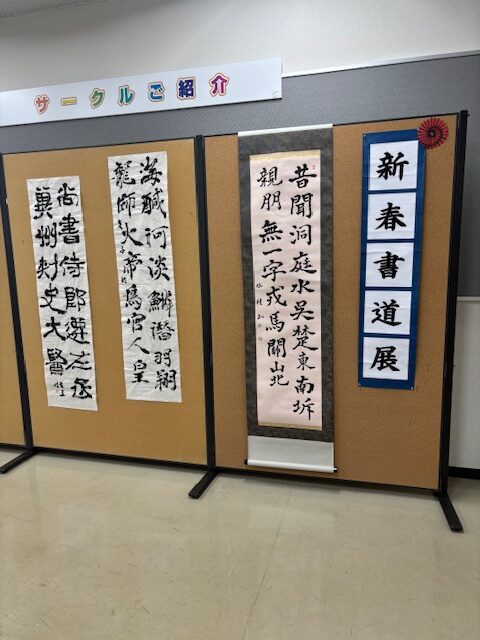 サークルご紹介
新春書道展
昔聞洞庭水吳楚東南坼
親朋無一字戎馬關山北
海鹹河淡鱗潛羽翔
龍師火帝鳥官人皇
尚書侍郎遷左丞
冀州刺史大醫